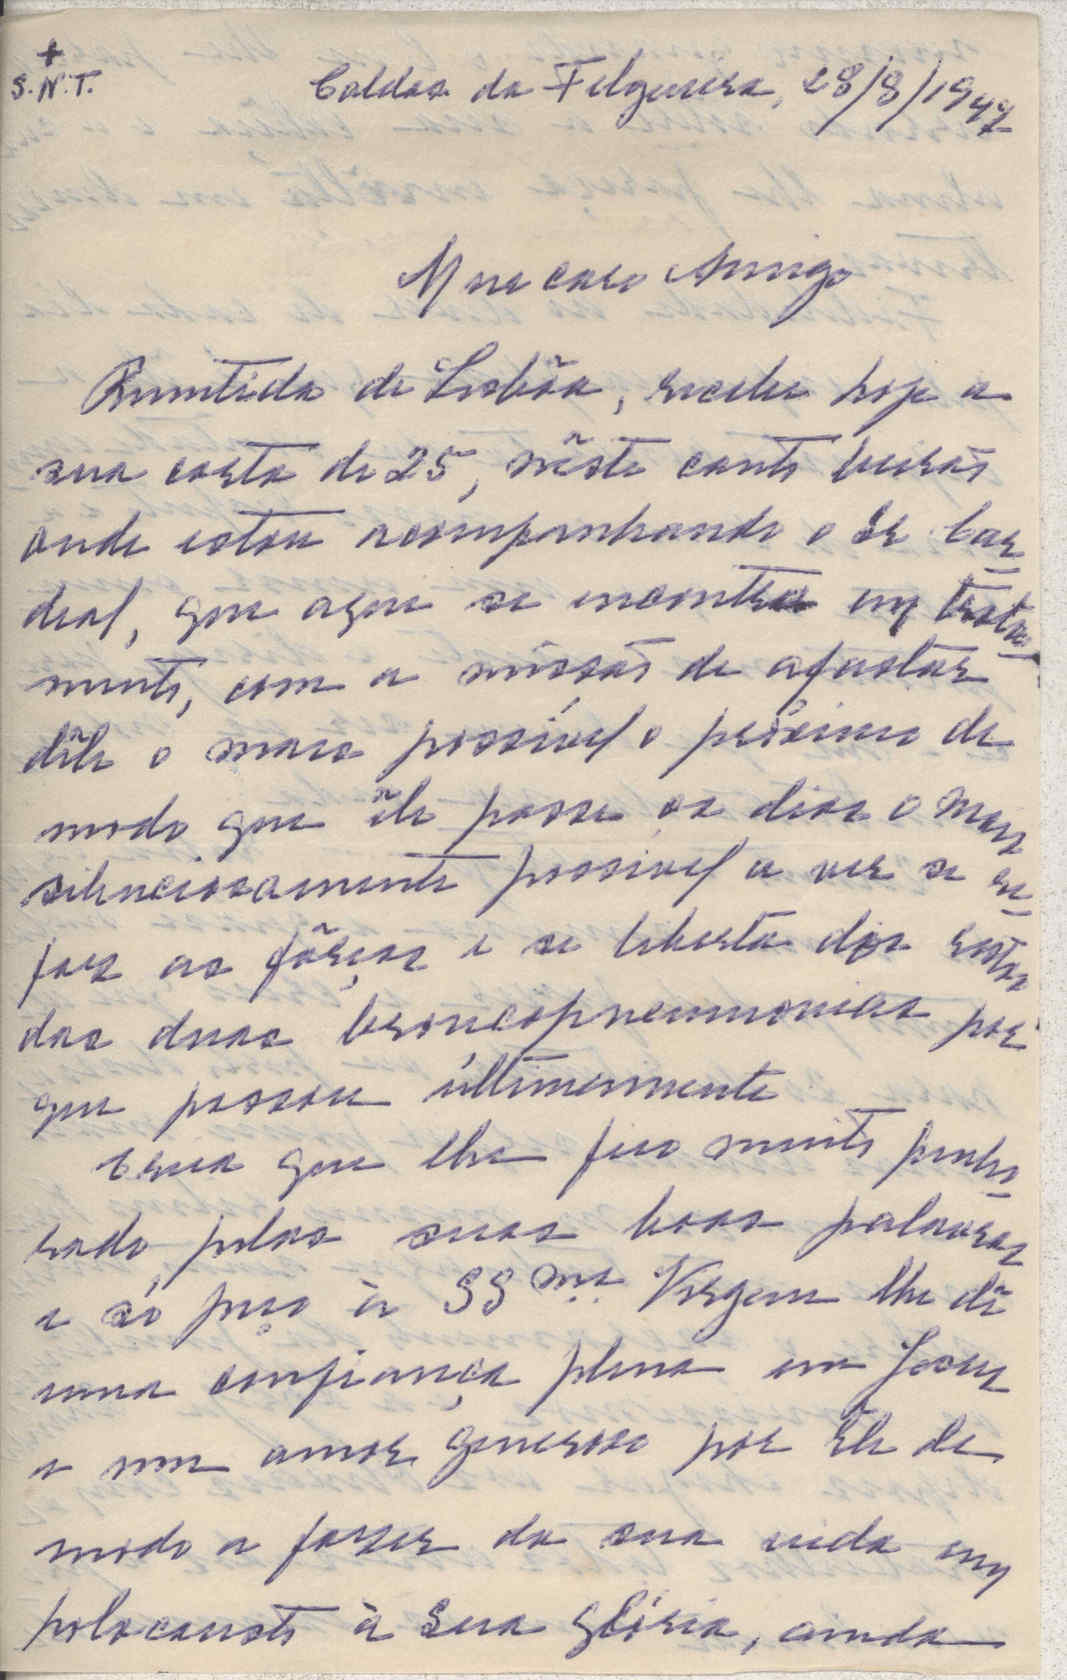 +
S.N.T.
Caldas da Felgueira, 28/8/1947
Meu caro Amigo
Remetida de Lisbôa, recebi hoje a
sua carta de 25, nêste canto beirão
onde estou acompanhando o Sr Car=
deal, que aqui se encontra em trata=
mento, com a missão de afastar
dêle o mais possível o próximo de
modo que êle passe os dias o mais
silenciosamente possivel a ver se re=
faz as fôrças e se liberta dos restos
das duas broncopneumonias por
que passou últimamente
Creia que lhe fico muito penho=
rado pelas suas boas palavras
e só peço à SSma. Virgem lhe dê
uma confiança plena em Jesus
e um amor generoso por Êle de
modo a fazer da sua vida um
holocausto à Sua glória, ainda